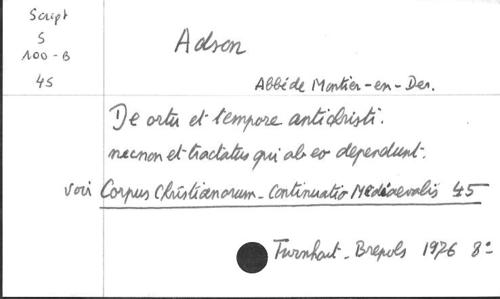 Script
S
100-B
45
Adson
Abbé de Montier-en-Der.
De ortu et tempore antichristi.
necnon et tractatus qui ab eo dependunt.
voir Corpus Christianorum - Continuatio Mediaevalis 45
Turnhout - Brepols 1976 8°